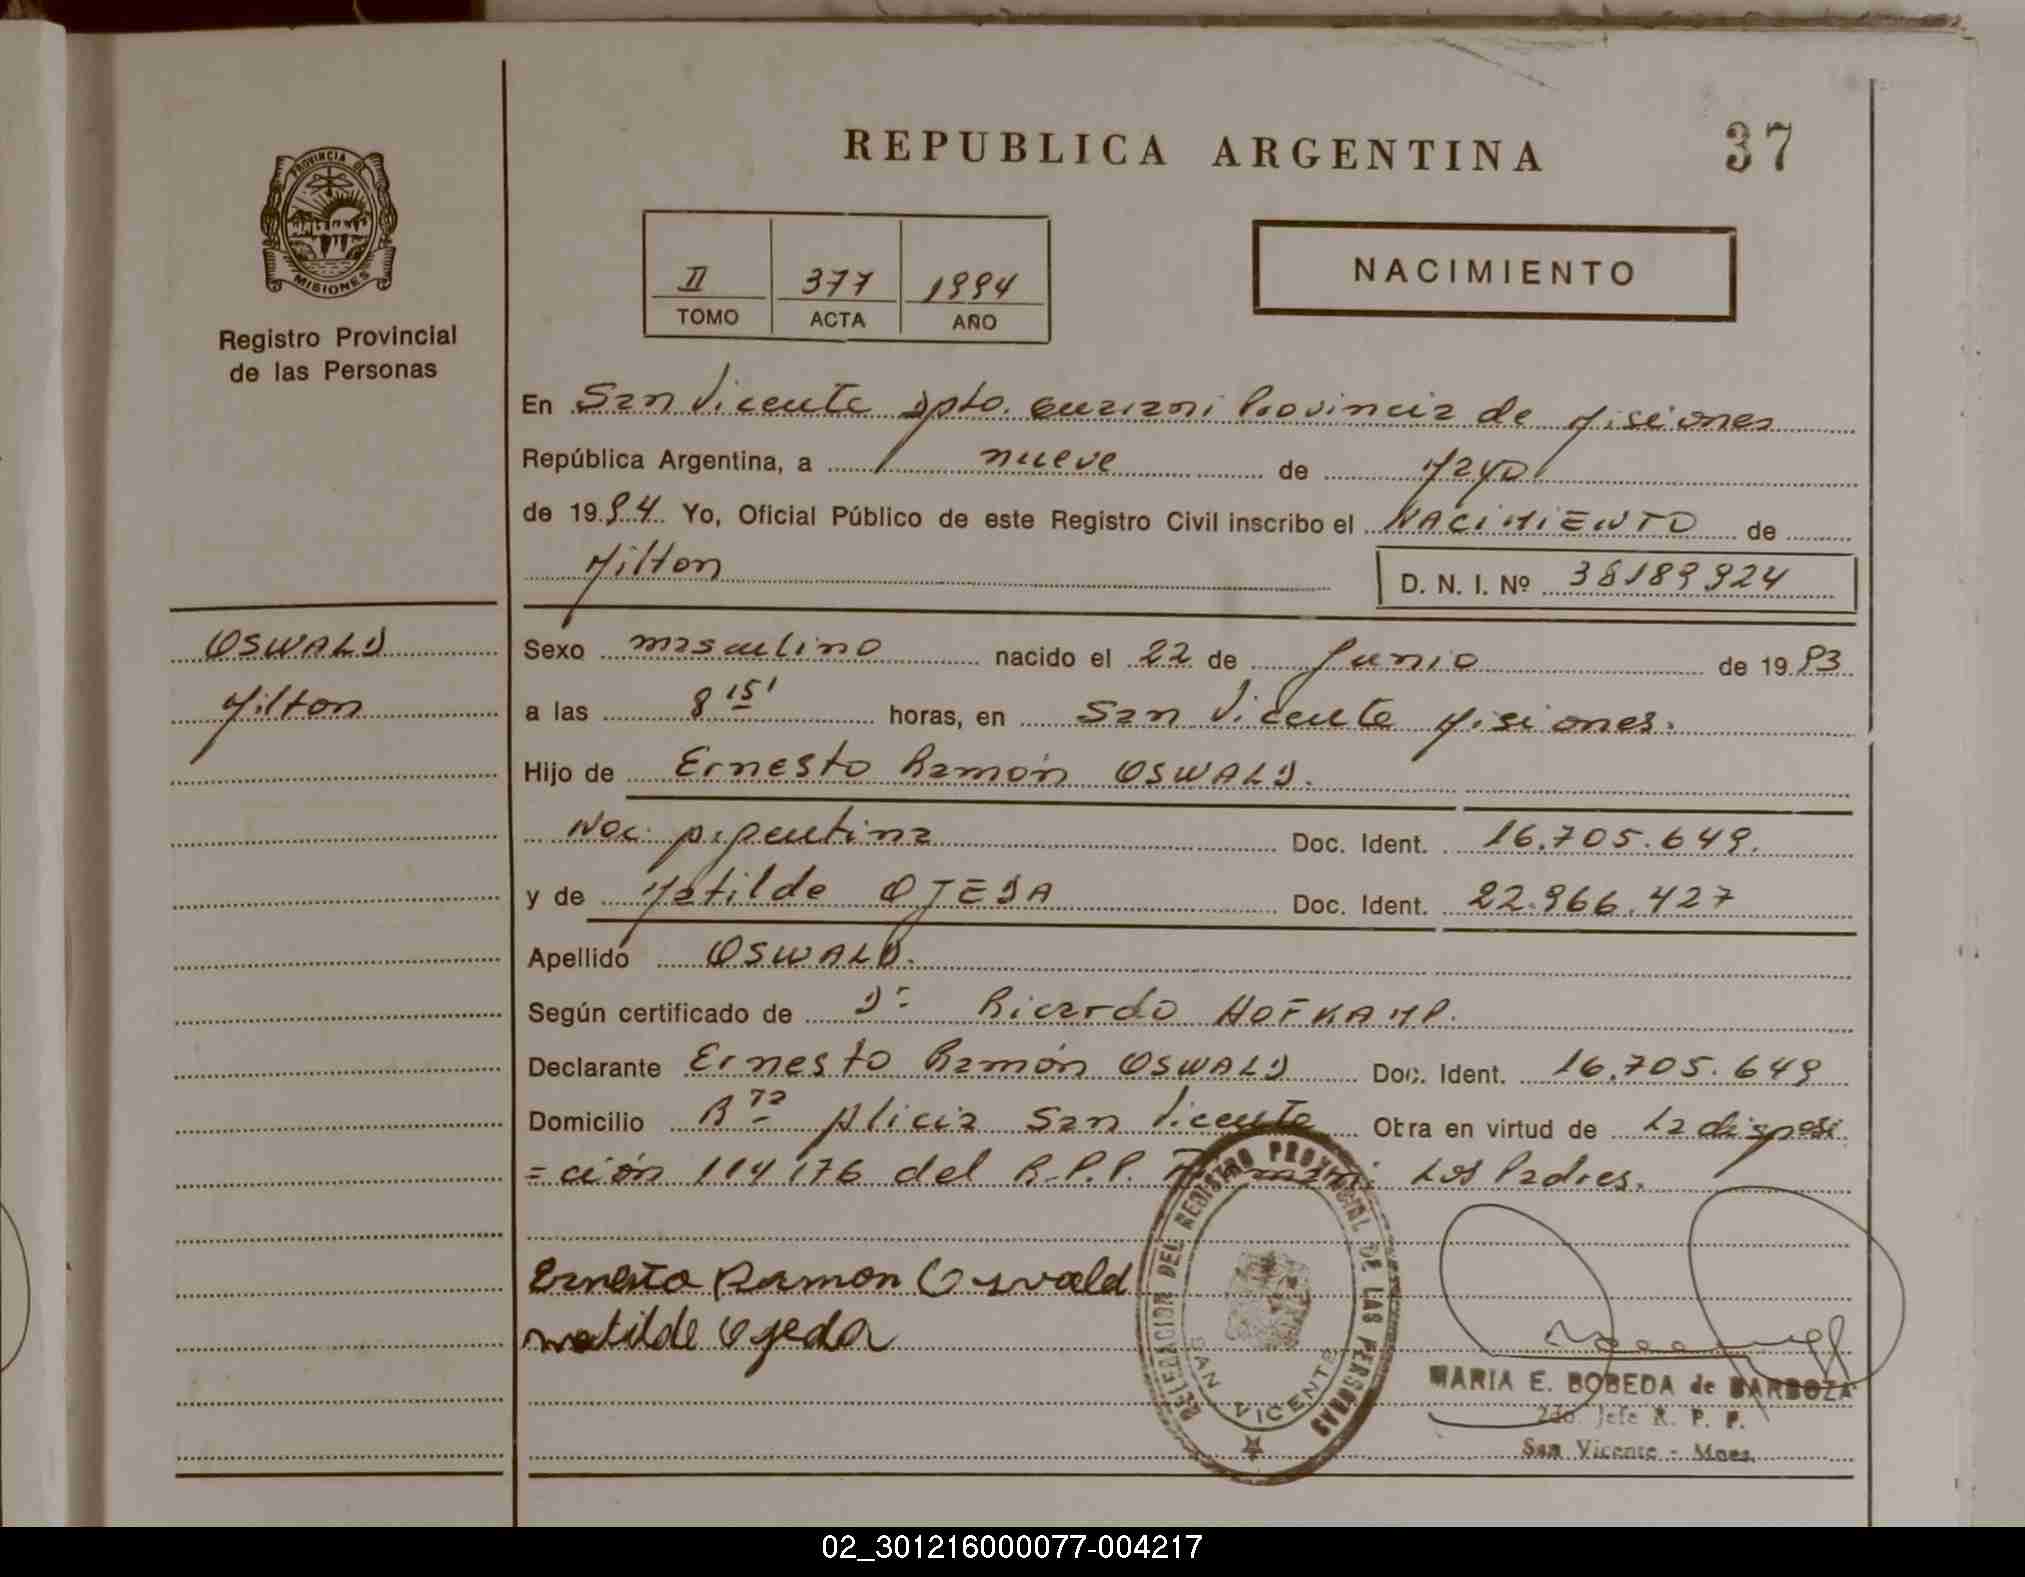 REPUBLICA ARGENTINA
37
PROVINCIA DE
MISIONES
Registro Provincial
de las Personas
II 377 1994
TOMO ACTA AÑO
NACIMIENTO
En San Vicente Dpto. Guarani Provincia de Misiones
República Argentina, a nueve de Mayo
de 1994 Yo, Oficial Público de este Registro Civil inscribo el NACIMIENTO de
Milton D. N. I. Nº 38189924
OSWALD
Milton
Sexo masculino nacido el 22 de Junio de 1993
a las 8 15' horas, en San Vicente Misiones.
Hijo de Ernesto Ramón OSWALD.
Nac. Argentina Doc. Ident. 16.705.649.
y de Matilde OJEDA Doc. Ident. 22.966.427
Apellido OSWALD.
Según certificado de Dr Ricardo HOFKAMP.
Declarante Ernesto Ramón OSWALD Doc. Ident. 16.705.649
Domicilio Alicia San Vicente Otra en virtud de La disposi
=ción 114/76 del R.P.P. Los Padres.
Ernesto Ramon Oswald
Matilde Ojeda
DELEGACION DEL REGISTRO PROVINCIAL DE LAS PERSONAS
SAN VICENTE
MARIA E. BOBEDA de BARBOZA
2do. Jefe R. P. P.
San Vicente - Mnes.
02_301216000077-004217